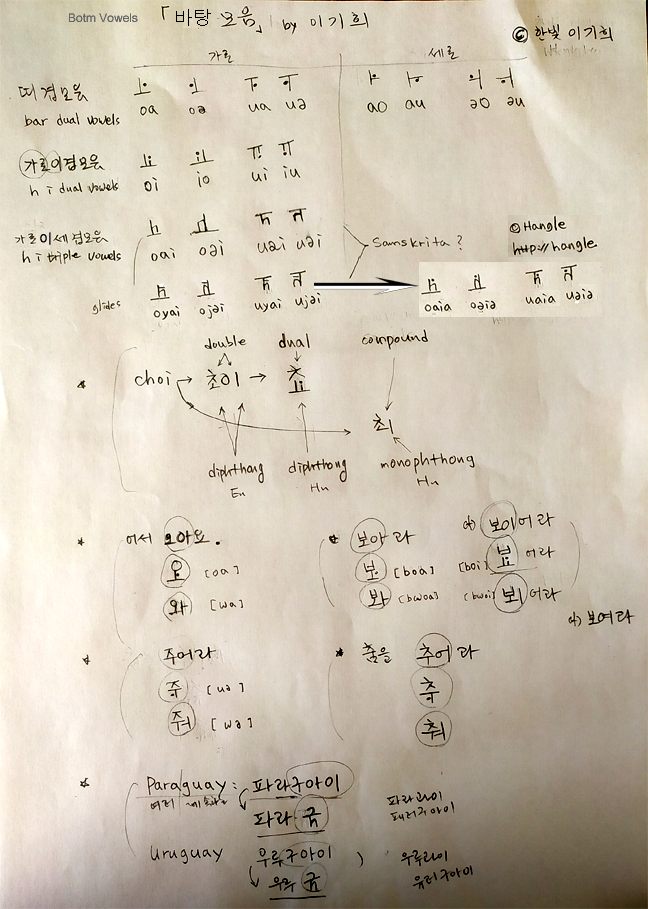 Botm Vowels 「바탕 모음」 by 이기희
© 한빛 이기희
가로 세로
띠 겹모음
bar dual vowels oa oə ua uə ao au əo əu
가로이겹모음
h i dual vowels oi io ui iu
가로이세겹모음
h i triple vowels oai oəi uai uəi Samskrita ?
© Hangle
http://hangle
glides oyai ojəi uyai ujəi oaia oəiə uaia uəiə
double dual compound
choi → 초이 →
최
diphthong diphthong monophthong
En Hn Hn
어서 오아요.
[oa]
와 [wa]
보아라
[boa]
봐 [bwoa]
보이어라
[boi] 어라
[bwoi] 뵈어라
보여라
주어라
[uə]
줘 [wə]
춤을 추어라
춰
Paraguay : 파라구아이
파라
파라과이
Uruguay 우루구아이
우루